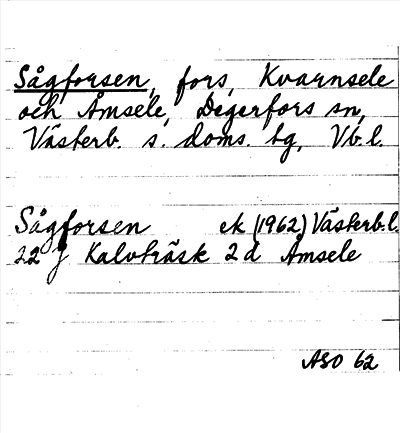 Sågforsen, fors, Kvarnsele
och Åmsele, Degerfors sn,
Västerb. s. doms. tg, Vb.l.
Sågforsen ek (1962) Västerb.l.
22 J Kalvträsk 2 d Åmsele
ASO 62